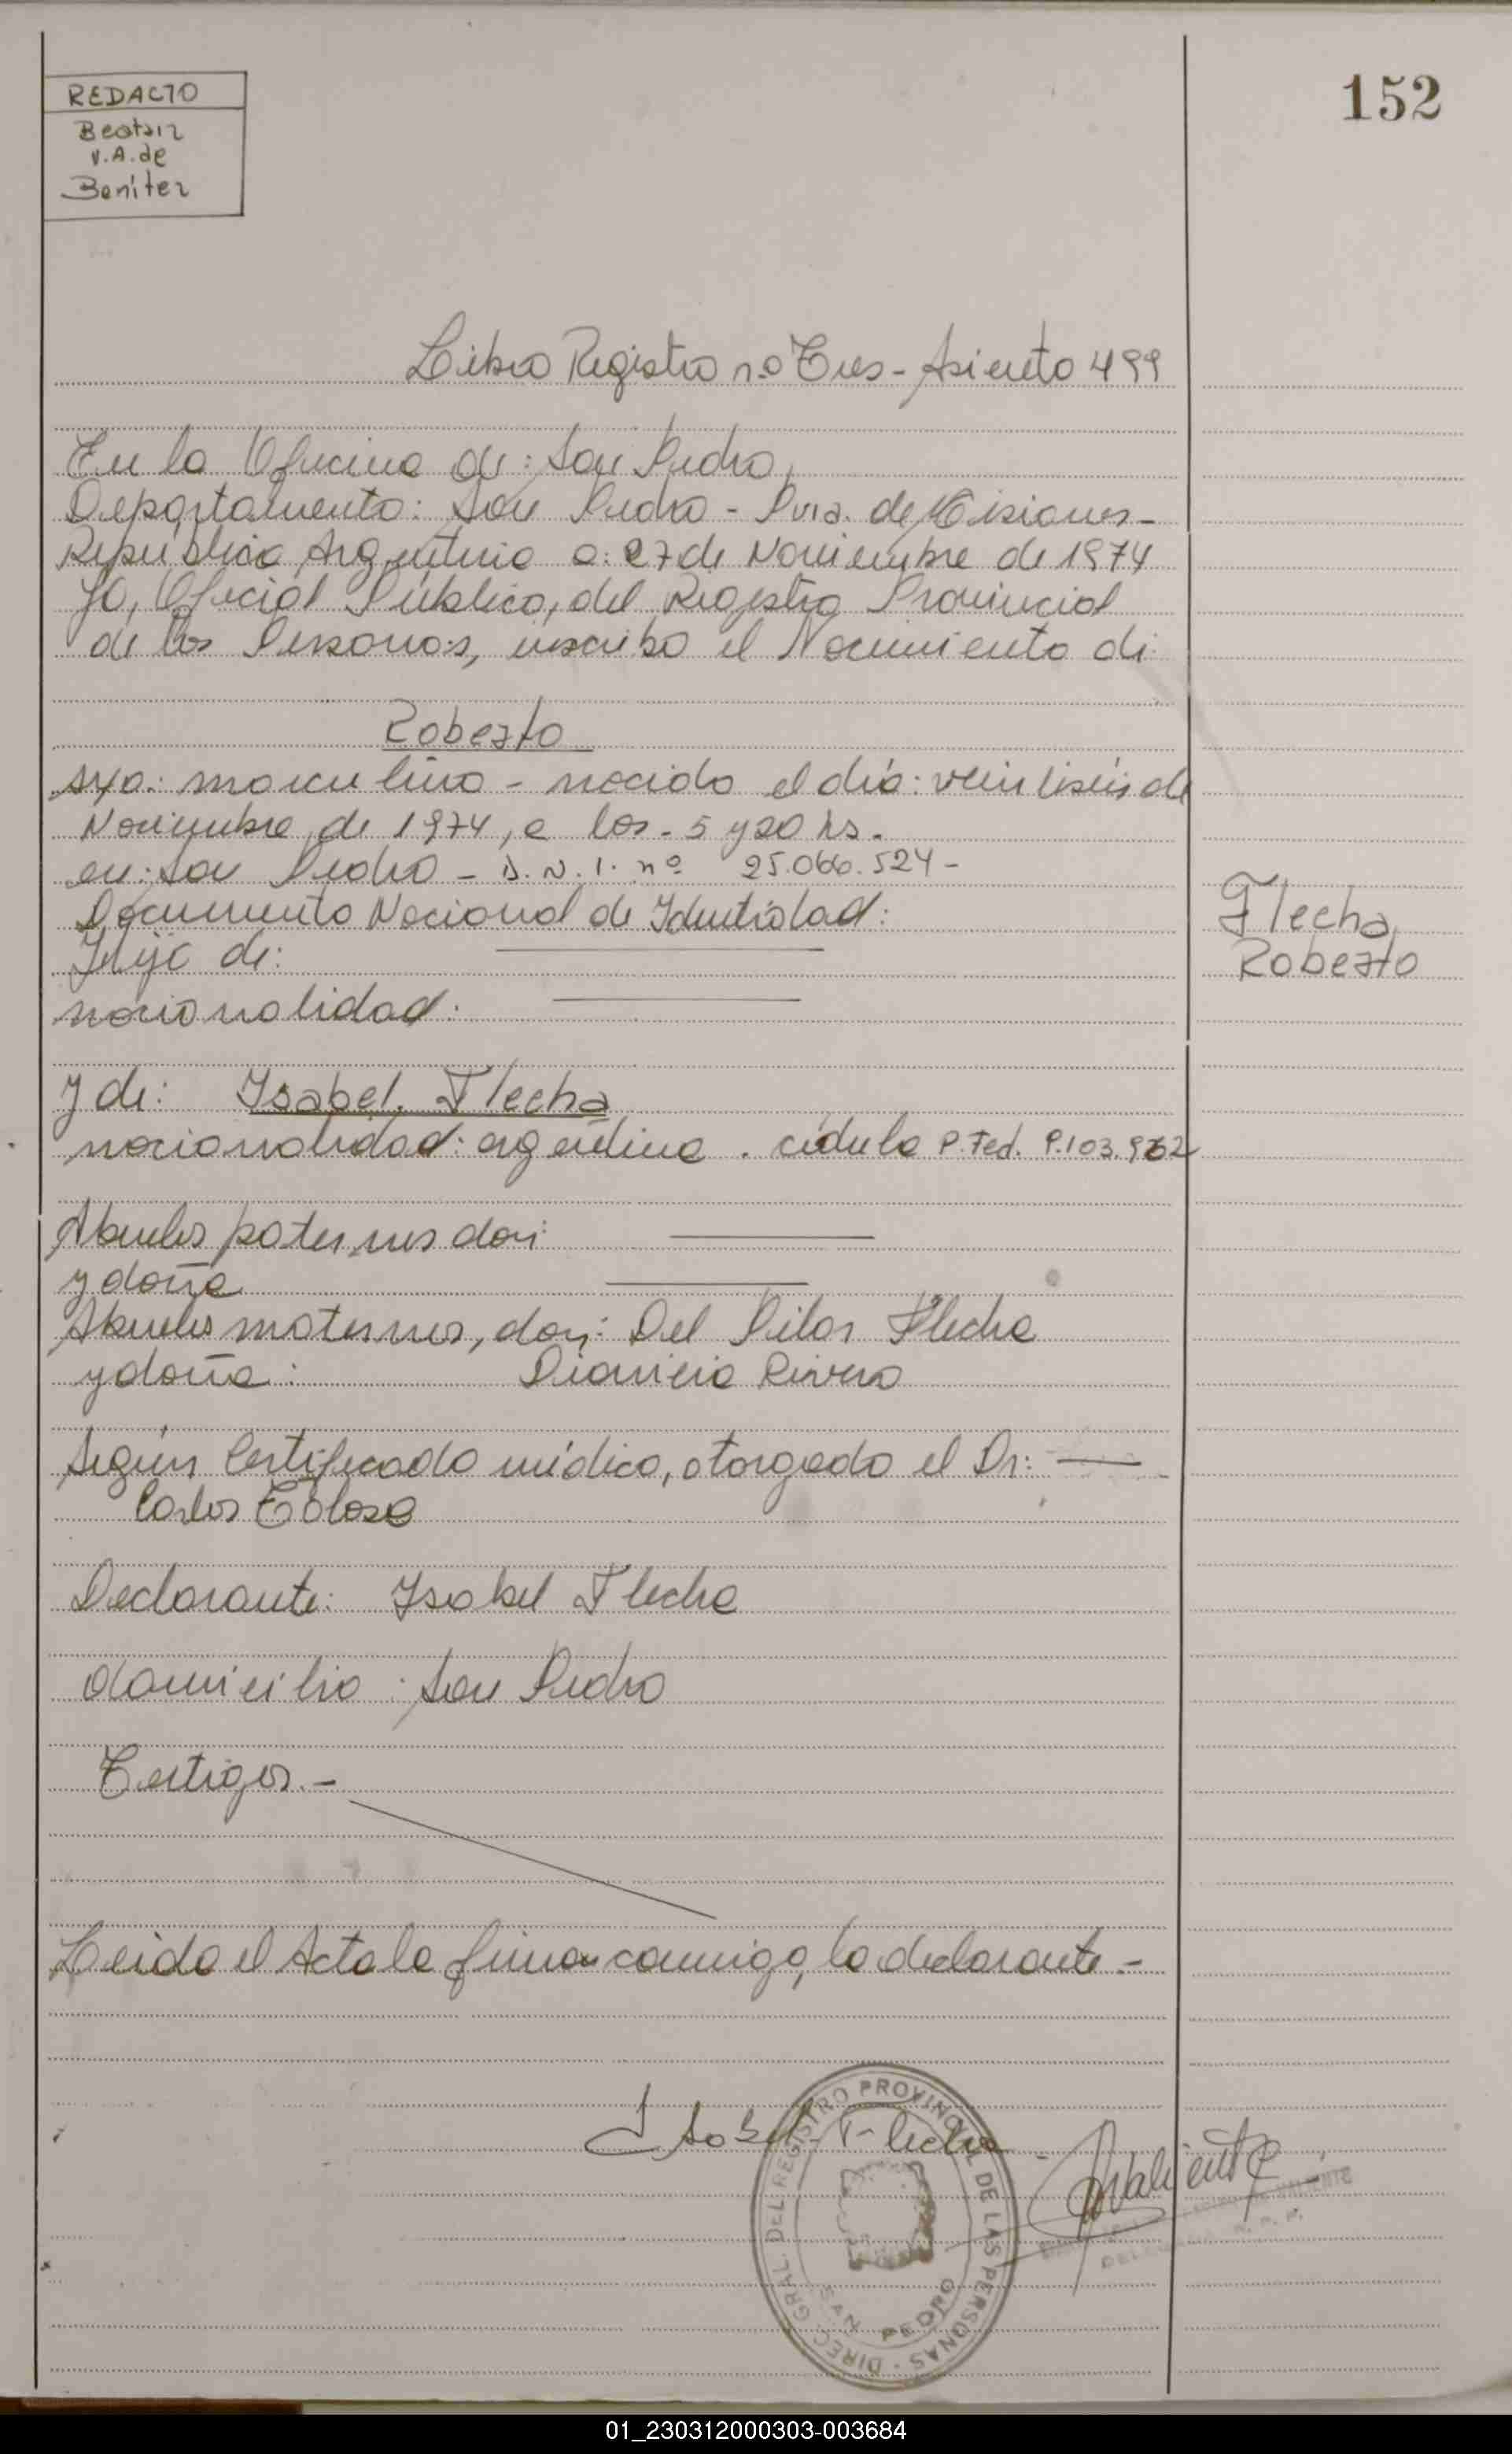 152
REDACTO
Beatriz
V.A. de
Benitez
Libro Registro n.o Tres - Asiento 499
En la Oficina de: San Pedro,
Departamento: San Pedro - Pvia. de Misiones -
República Argentina a: 27 de Noviembre de 1974
Yo, Oficial Público, del Registro Provincial
de las Personas, inscribo el Nacimiento de:
Roberto
sexo: masculino - nacido el día: veintiseis de
Noviembre de 1974, a las - 5 y 20 hs.
en: San Pedro - D.N.I. nº 25.066.524 -
Documento Nacional de Identidad:
Hijo de:
nacionalidad:
Flecha,
Roberto
y de: Isabel Flecha
nacionalidad: argentina . cédula P. Fed. 9.103.962
Abuelos paternos don:
y doña
Abuelos maternos, don: Del Pilar Flecha
y doña: Dionicia Rivero
Según Certificado médico, otorgado el Dr:
Carlos Tolosa
Declarante: Isabel Flecha
domicilio: San Pedro
Testigos. -
Leida el Acta la firma conmigo, la declarante. -
Isabel Flecha
Valiente
DIREC. GRAL. DEL REGISTRO PROVINCIAL DE LAS PERSONAS -
SAN PEDRO
DE VALIENTE
01_230312000303-003684